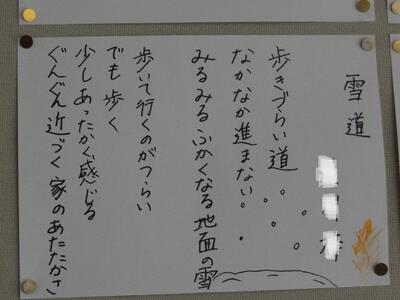 雪道
歩きづらい道
なかなか進まない
みるみるふかくなる地面の雪
歩いて行くのがつらい
でも歩く
少しあったかく感じる
ぐんぐん近づく家のあたたかさ